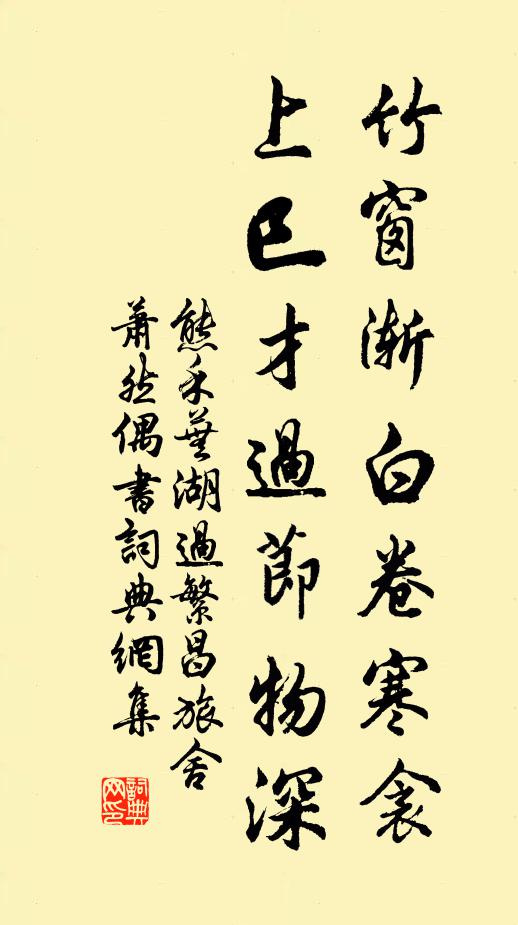 竹窗漸白卷寒衾
上巳才過節物深
熊禾蕪湖過繁昌旅舍
蕭然偶書詞典網集
詞典
网印